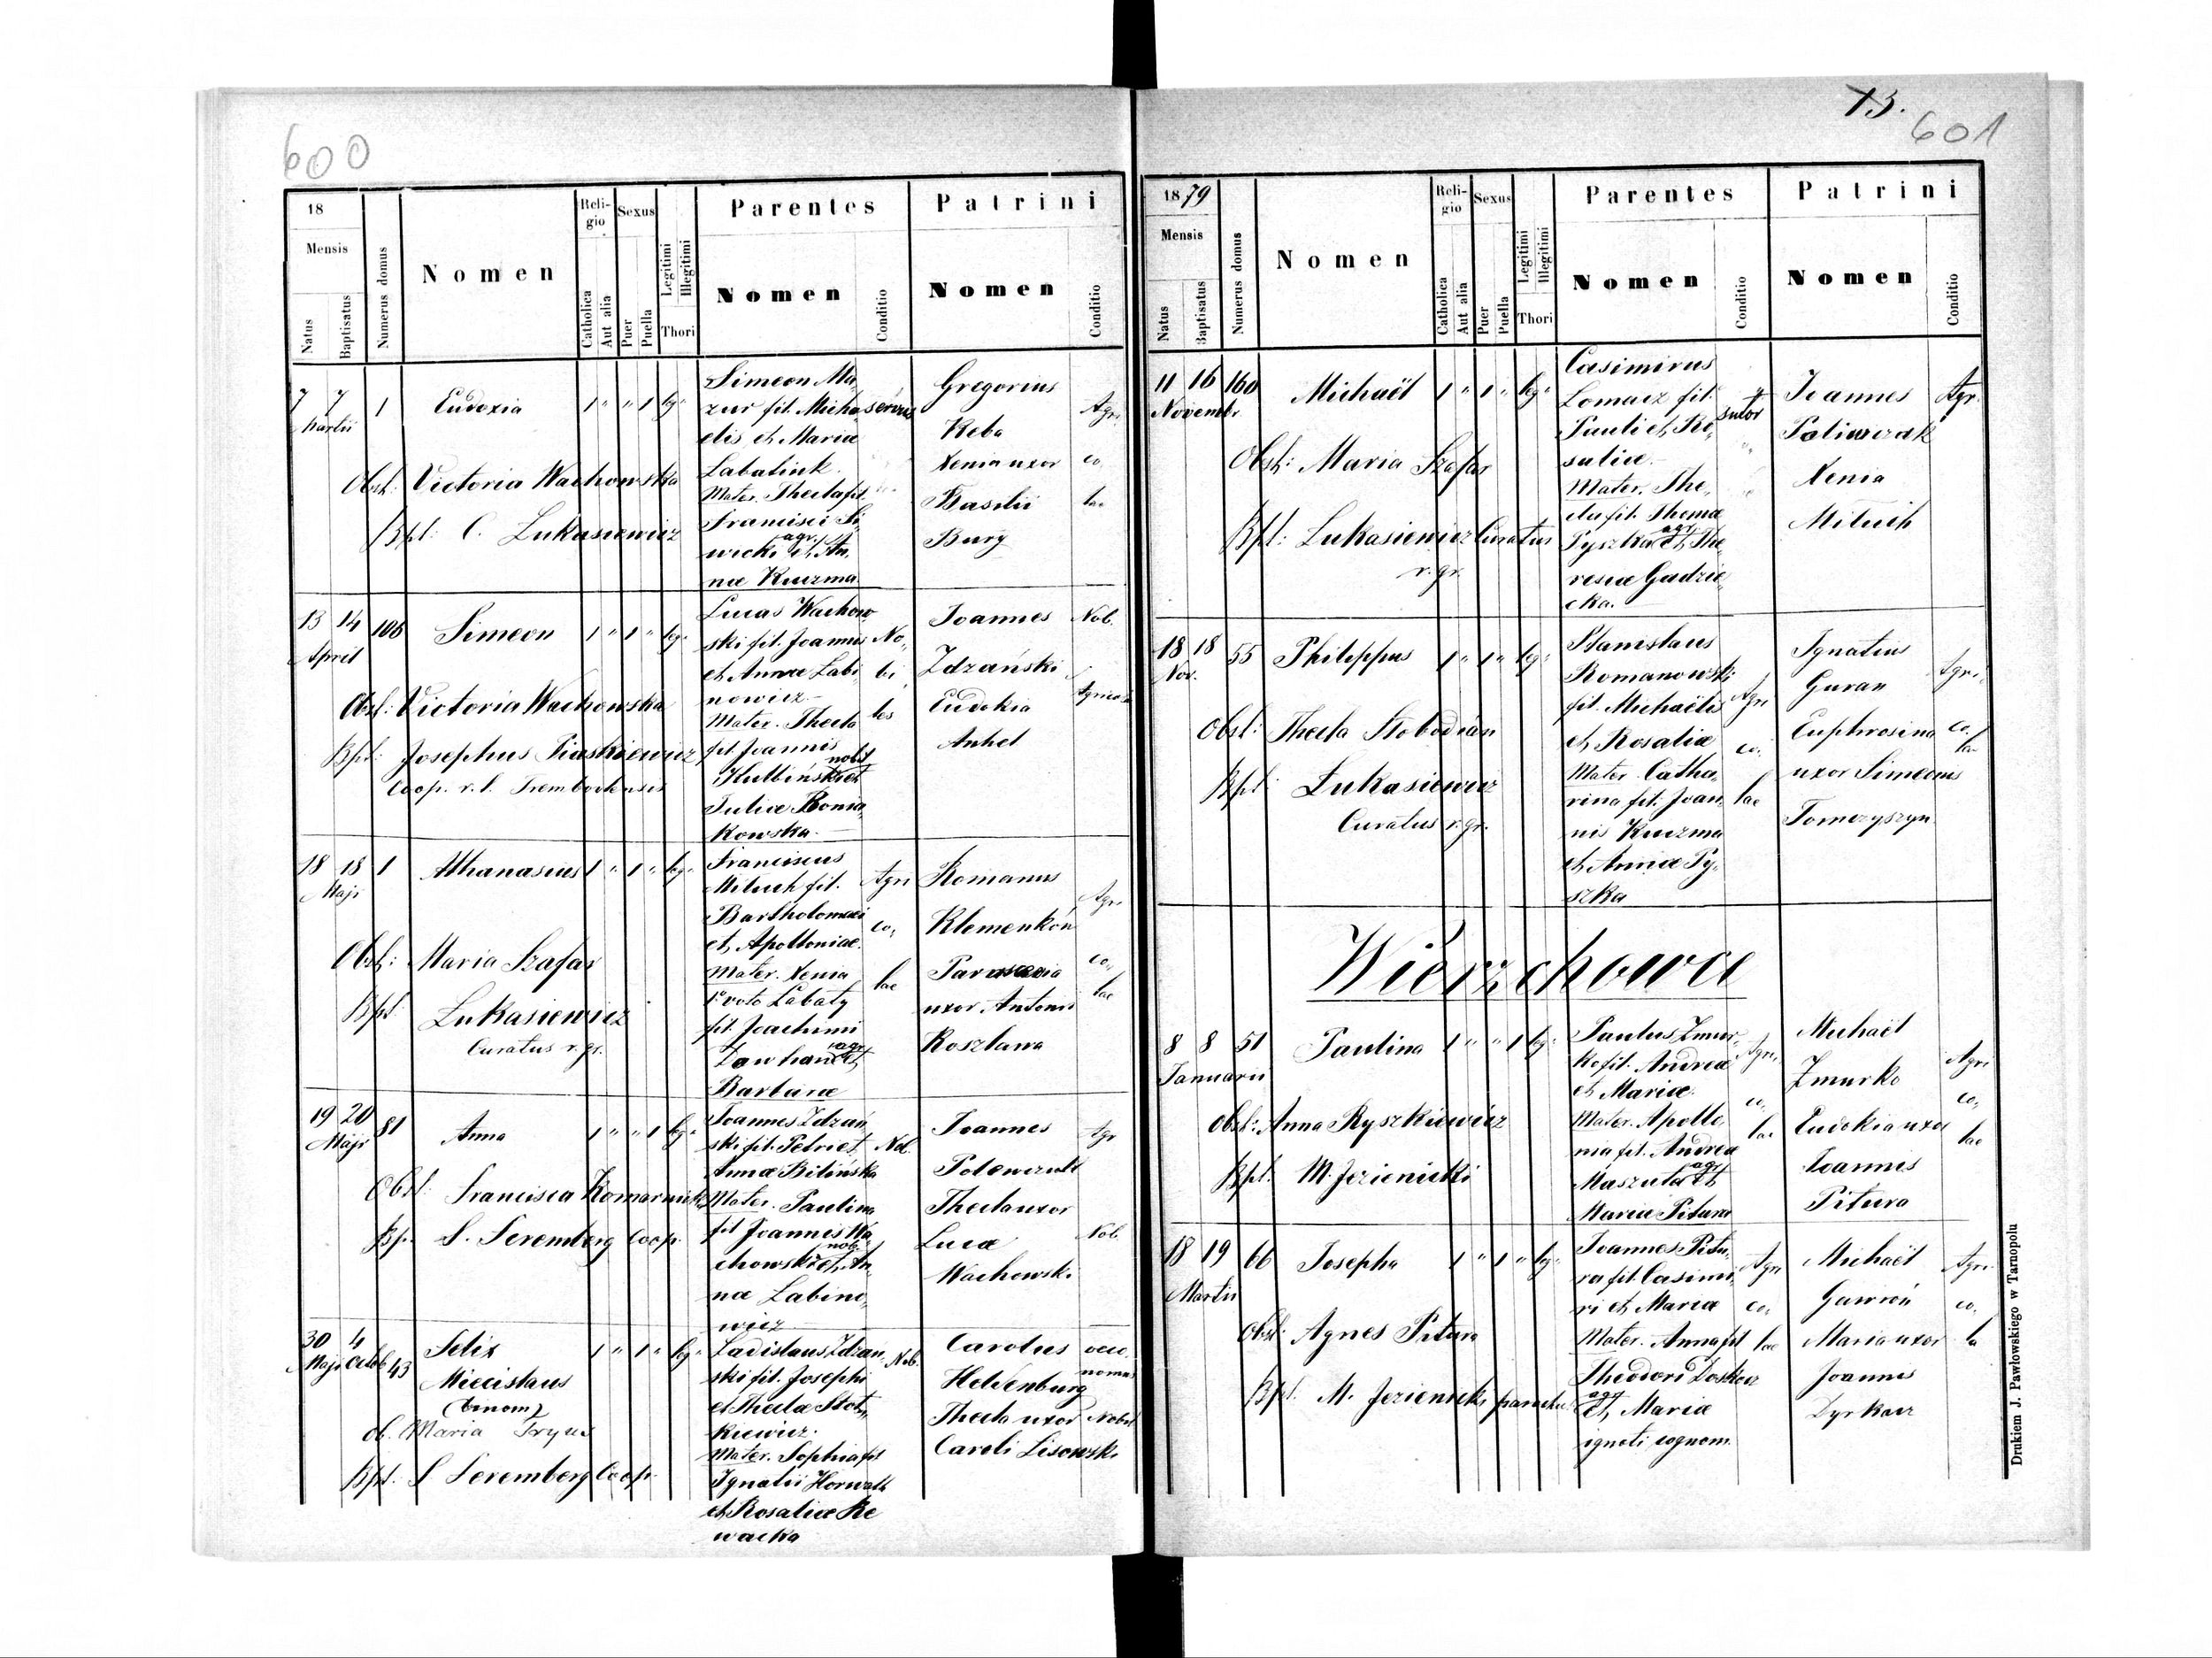 600
18
Mensis
Natus
Baptisatus
Numerus domus
Nomen
Religio
Catholica
Aut alia
Sexus
Puer
Puella
Legitimi
Illegitimi
Thori
Parentes
Nomen
Conditio
Patrini
Nomen
Conditio
7 7 1 Eudoxia 1 " " 1 leg.
Martii
Obst: Victoria Wachowska
Bpt: C. Lukasiewicz
Simeon Ma
zur fil. Micha servus
elis et Mariæ
Labatiuk.
Mater. Thecla fil.
Francisci Si
wicki agr. et An
næ Kuczma
Gregorius
Keba
Xenia uxor
Basilii
Burg
Agri
co
lae
13 14 106 Simeon 1 " 1 " leg.
April
Obst: Victoria Wachowska
Bpt: Josephus Piaskiewicz
Coop. r. l. Trembovlensis
Lucas Wachow
ski fil. Joannis
et Annæ Labi
nowicz
Mater. Thecla
fil. Joannis
nobil
et
Juliæ Bonia
kowska.
No
bi
les
Joannes
Zdzański
Eudokia
Anhel
Nob.
Agricola
18 18 1 Athanasius 1 " 1 " leg.
Maji
Obst: Maria Szafar
Bpt: Lukasiewicz
Curatus r. gr.
Franciscus
Miluch fil.
Bartholomæi
et Apolloniæ.
Mater. Xenia
1º voto Labaty
fil. Joachimi
Dowhan agr. et
Barbaræ
Agri
co,
lae
Romanus
Klemenkón
Parascevia
uxor Antonii
Koszlawa
Agri
co,
lae
19 20 81 Anna 1 " " 1 leg.
Maji
Obst: Francisca Komarnicka
Bp. S. Seremberg Coop.
Joannes Zdzań
ski fil. Petri et Nob.
Annæ Bilińska
Mater. Paulina
fil Joannis Wa
chowski nob. et An
næ Labino
wicz
Joannes
Polewczuk
Thecla uxor
Lucæ
Wachowski
Agr
Nob.
30 4 43 Felix 1 " 1 " leg.
Maji Octob
Miecislaus
(binom)
ob. Maria Tryus
Bpt. S Seremberg Coop.
Ladislaus Zdzań Nob.
ski fil. Josephi
et Theclæ Stot
kiewicz.
Mater. Sophia fil
Ignatii Horwath
et Rosaliæ Re
wacka
Carolus
Heldenburg
Thecla uxor
Caroli Lisowski
oeco
nomus
Nobil
73.
601
1879
Mensis
Natus
Baptisatus
Numerus domus
Nomen
Religio
Catholica
Aut alia
Sexus
Puer
Puella
Legitimi
Illegitimi
Thori
Parentes
Nomen
Conditio
Patrini
Nomen
Conditio
11 16 160 Michaël 1 " 1 " leg.
Novembr.
Obst: Maria Szafar
Bpt: Lukasiewicz Curatus
r. gr.
Casimirus
Lomacz fil.
Pauli et Ro
saliæ.
Mater. The
cla fil. Thomæ
Pyszka agr. et The
resiæ Gadzie
cka.
sutor
Joannes
Poliwczak
Xenia
Miluch
Agr.
18 18 55 Philippus 1 " 1 " leg.
Nov.
Obst: Thecla Slobodian
Bpt: Łukasiewicz
Curatus r. gr.
Stanislaus
Romanowski
fil. Michaëlis
et Rosaliæ
Mater Catha
rina fil. Joan
nis Kuczma
et Annæ Py
szka
Agri
co,
lae
Ignatius
Guran
Euphrosina
uxor Simeonis
Tomczyszyn
Agri,
co
lae
Wierzchowce
8 8 51 Paulina 1 " " 1 leg.
Januarii
Obst: Anna Ryszkiewicz
Bpt. M. Jezienicki
Paulus Zmur
ko fil. Andreæ
et Mariæ.
Mater. Apollo
nia fil. Andreæ
Maszula agr. et
Mariæ Pitura
Agri,
co,
lae
Michaël
Zmurko
Eudokia uxor
Joannis
Pitura
Agri
co,
lae
18 19 66 Josepha 1 " 1 " leg.
Martii
Obst: Agnes Pitura
Bpt. M. Jezienicki paroch.
Joannes Pitu
ra fil. Casimi
ri et Mariæ
Mater. Anna fil
Theodori Doskocz
agr et Mariæ
ignoti cognom.
Agri
co,
lae
Michaël
Gawroń
Maria uxor
Joannis
Dyrkacz
Agri
co,
la
Drukiem J. Pawłowskiego w Tarnopolu